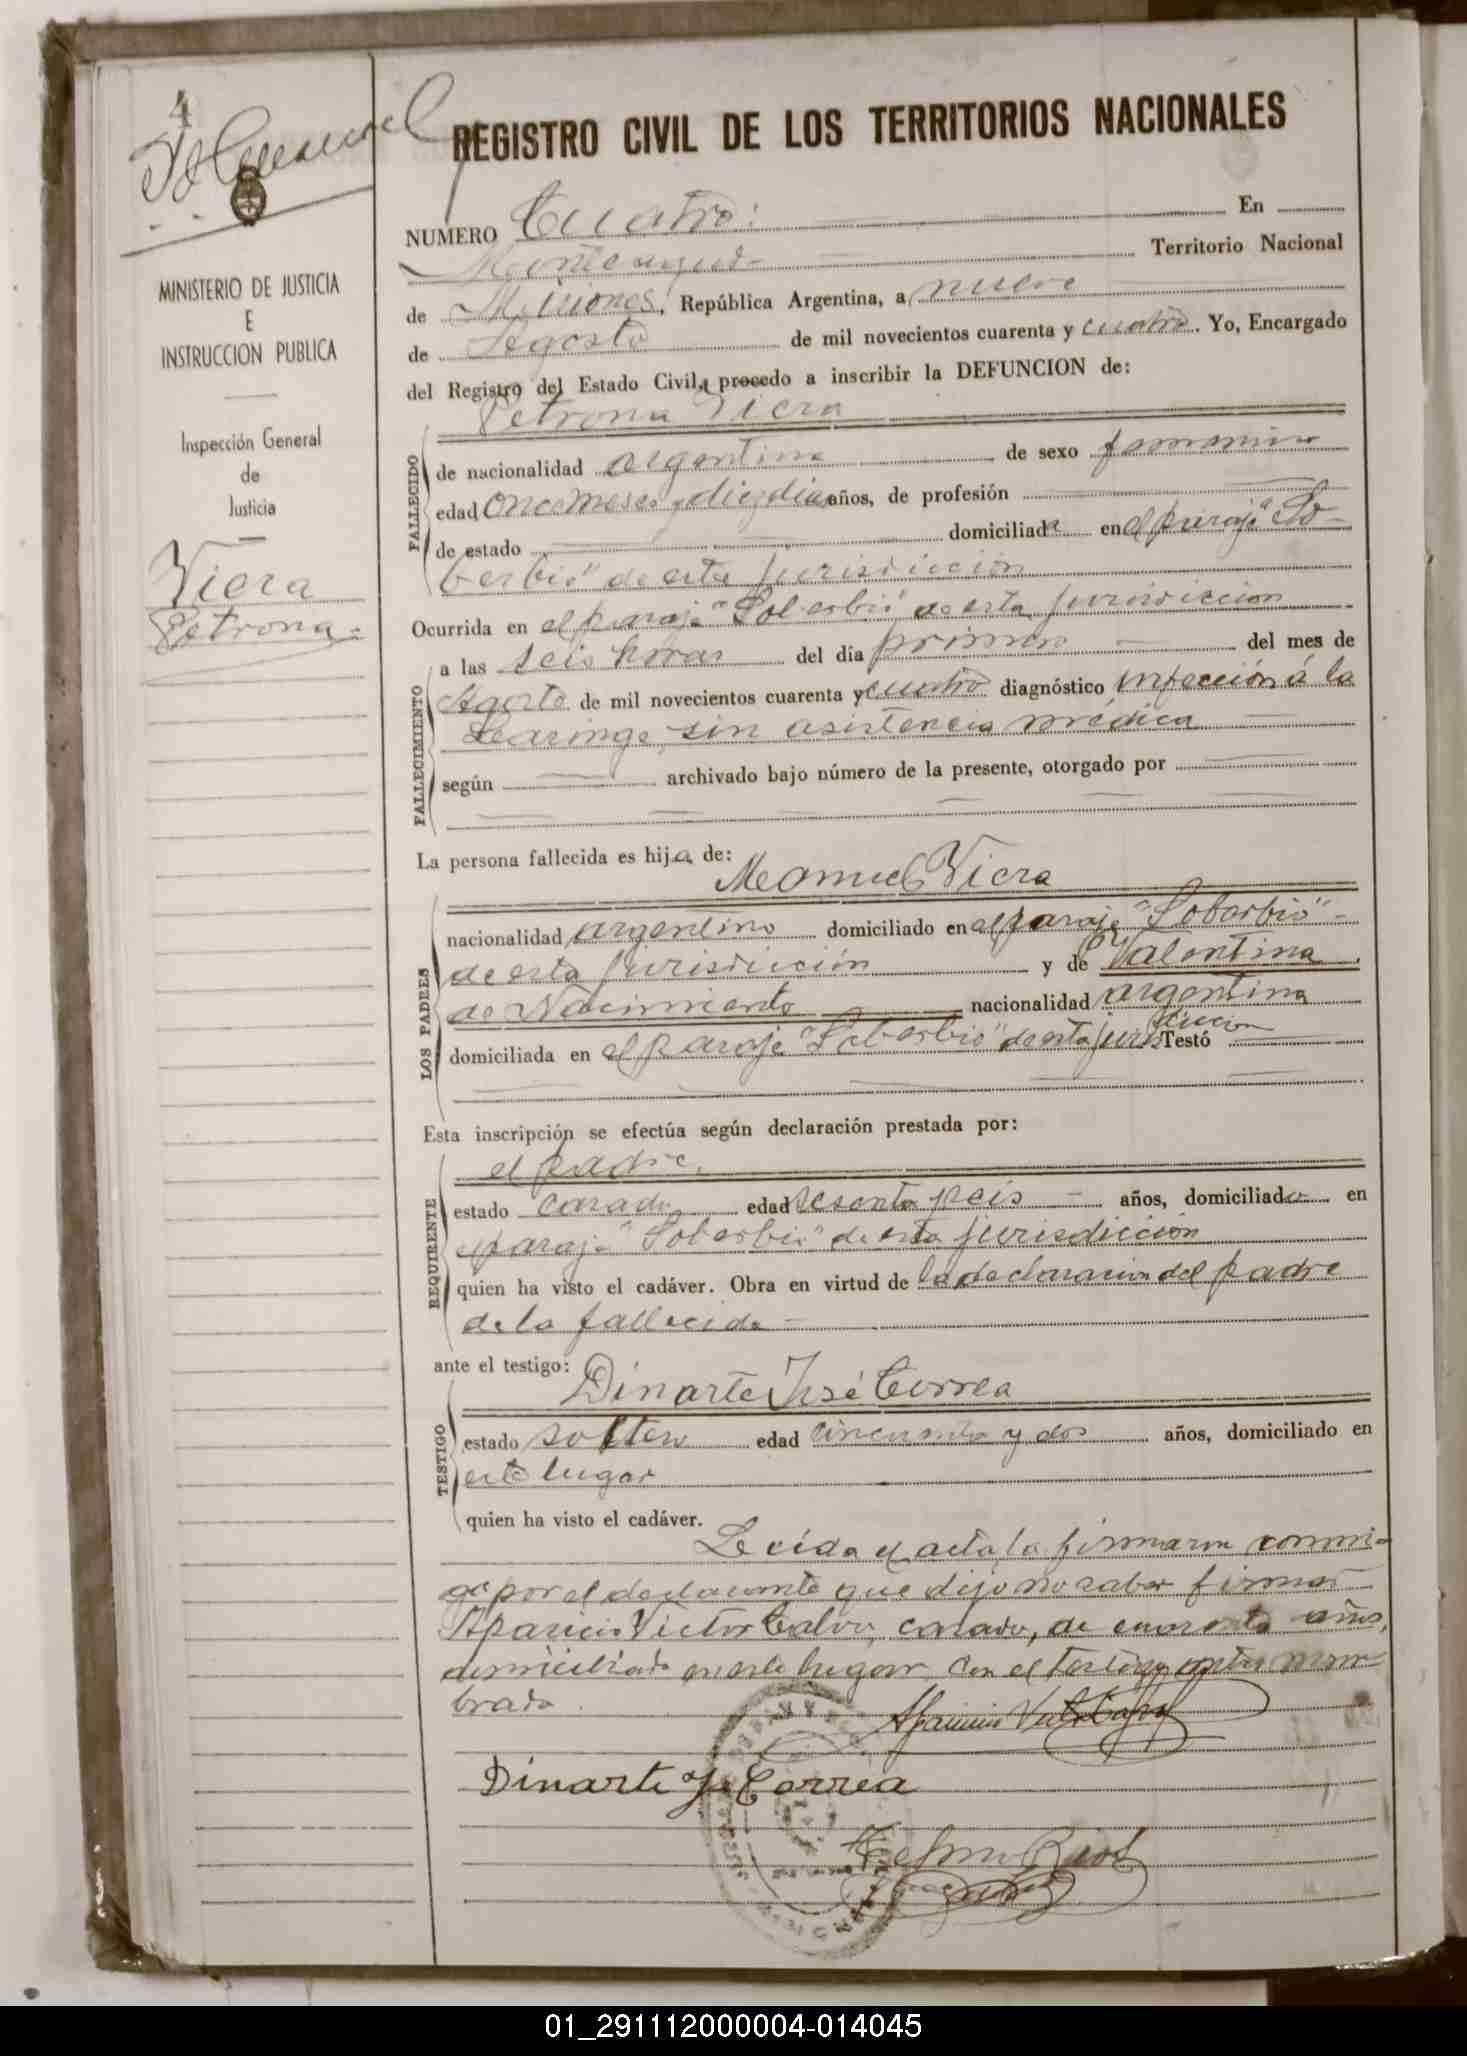 4
REGISTRO CIVIL DE LOS TERRITORIOS NACIONALES
MINISTERIO DE JUSTICIA
E
INSTRUCCION PUBLICA
Inspección General
de
Justicia
Viera
Petrona
NUMERO Cuatro: En
Monteagudo Territorio Nacional
de Misiones, República Argentina, a nueve
de Agosto de mil novecientos cuarenta y cuatro. Yo, Encargado
del Registro del Estado Civil, procedo a inscribir la DEFUNCION de:
Petrona Viera
FALLECIDO
de nacionalidad argentina de sexo femenino
edad once meses y diez dias años, de profesión
de estado domiciliada en el paraje "So-
berbio" de esta jurisdicción
Ocurrida en el paraje "Soberbio" de esta jurisdiccion
FALLECIMIENTO
a las seis horas del día primero del mes de
Agosto de mil novecientos cuarenta y cuatro diagnóstico infección á la
Laringe, sin asistencia médica
según archivado bajo número de la presente, otorgado por
La persona fallecida es hija de:
Manuel Viera
LOS PADRES
nacionalidad argentino domiciliado en el paraje "Soberbio"
de esta jurisdicción y de Valentina
de Nacimiento nacionalidad argentina
domiciliada en el paraje "Soberbio" de esta jurisdiccion Testó
Esta inscripción se efectúa según declaración prestada por:
el padre.
REQUIRENTE
estado casado edad sesenta y seis años, domiciliado en
el paraje "Soberbio" de esta jurisdicción
quien ha visto el cadáver. Obra en virtud de la declaracion del padre
de la fallecida
ante el testigo:
Dinarte José Correa
TESTIGO
estado soltero edad cincuenta y dos años, domiciliado en
este lugar
quien ha visto el cadáver.
Leida el acta, la firmaron conmi-
go por el declarante que dijo no saber firmar
Aparicio Victor Calvo, casado, de cuarenta años,
domiciliado en este lugar con el testigo antes nom-
brado.
Dinarte J. Correa
01_291112000004-014045